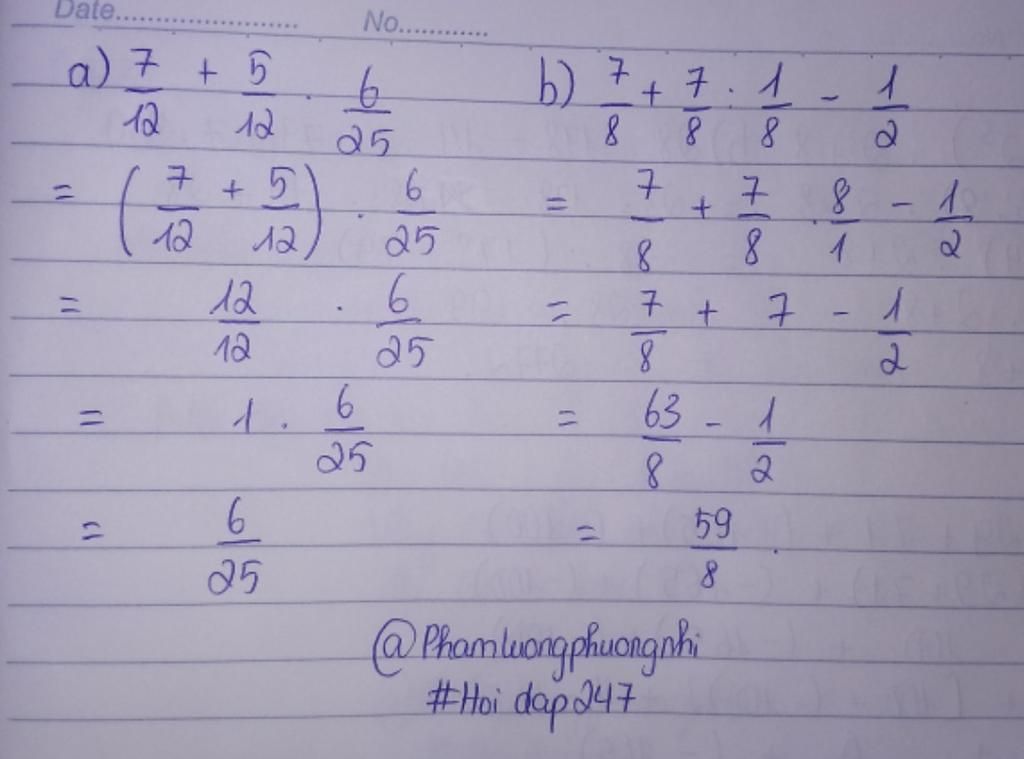 Date........................ No............
a) 7/12 + 5/12 . 6/25
= (7/12 + 5/12) . 6/25
= 12/12 . 6/25
= 1 . 6/25
= 6/25
b) 7/8 + 7/8 : 1/8 - 1/2
= 7/8 + 7/8 . 8/1 - 1/2
= 7/8 + 7 - 1/2
= 63/8 - 1/2
= 59/8 .
@Phamluongphuongnhi
#Hoi dap247